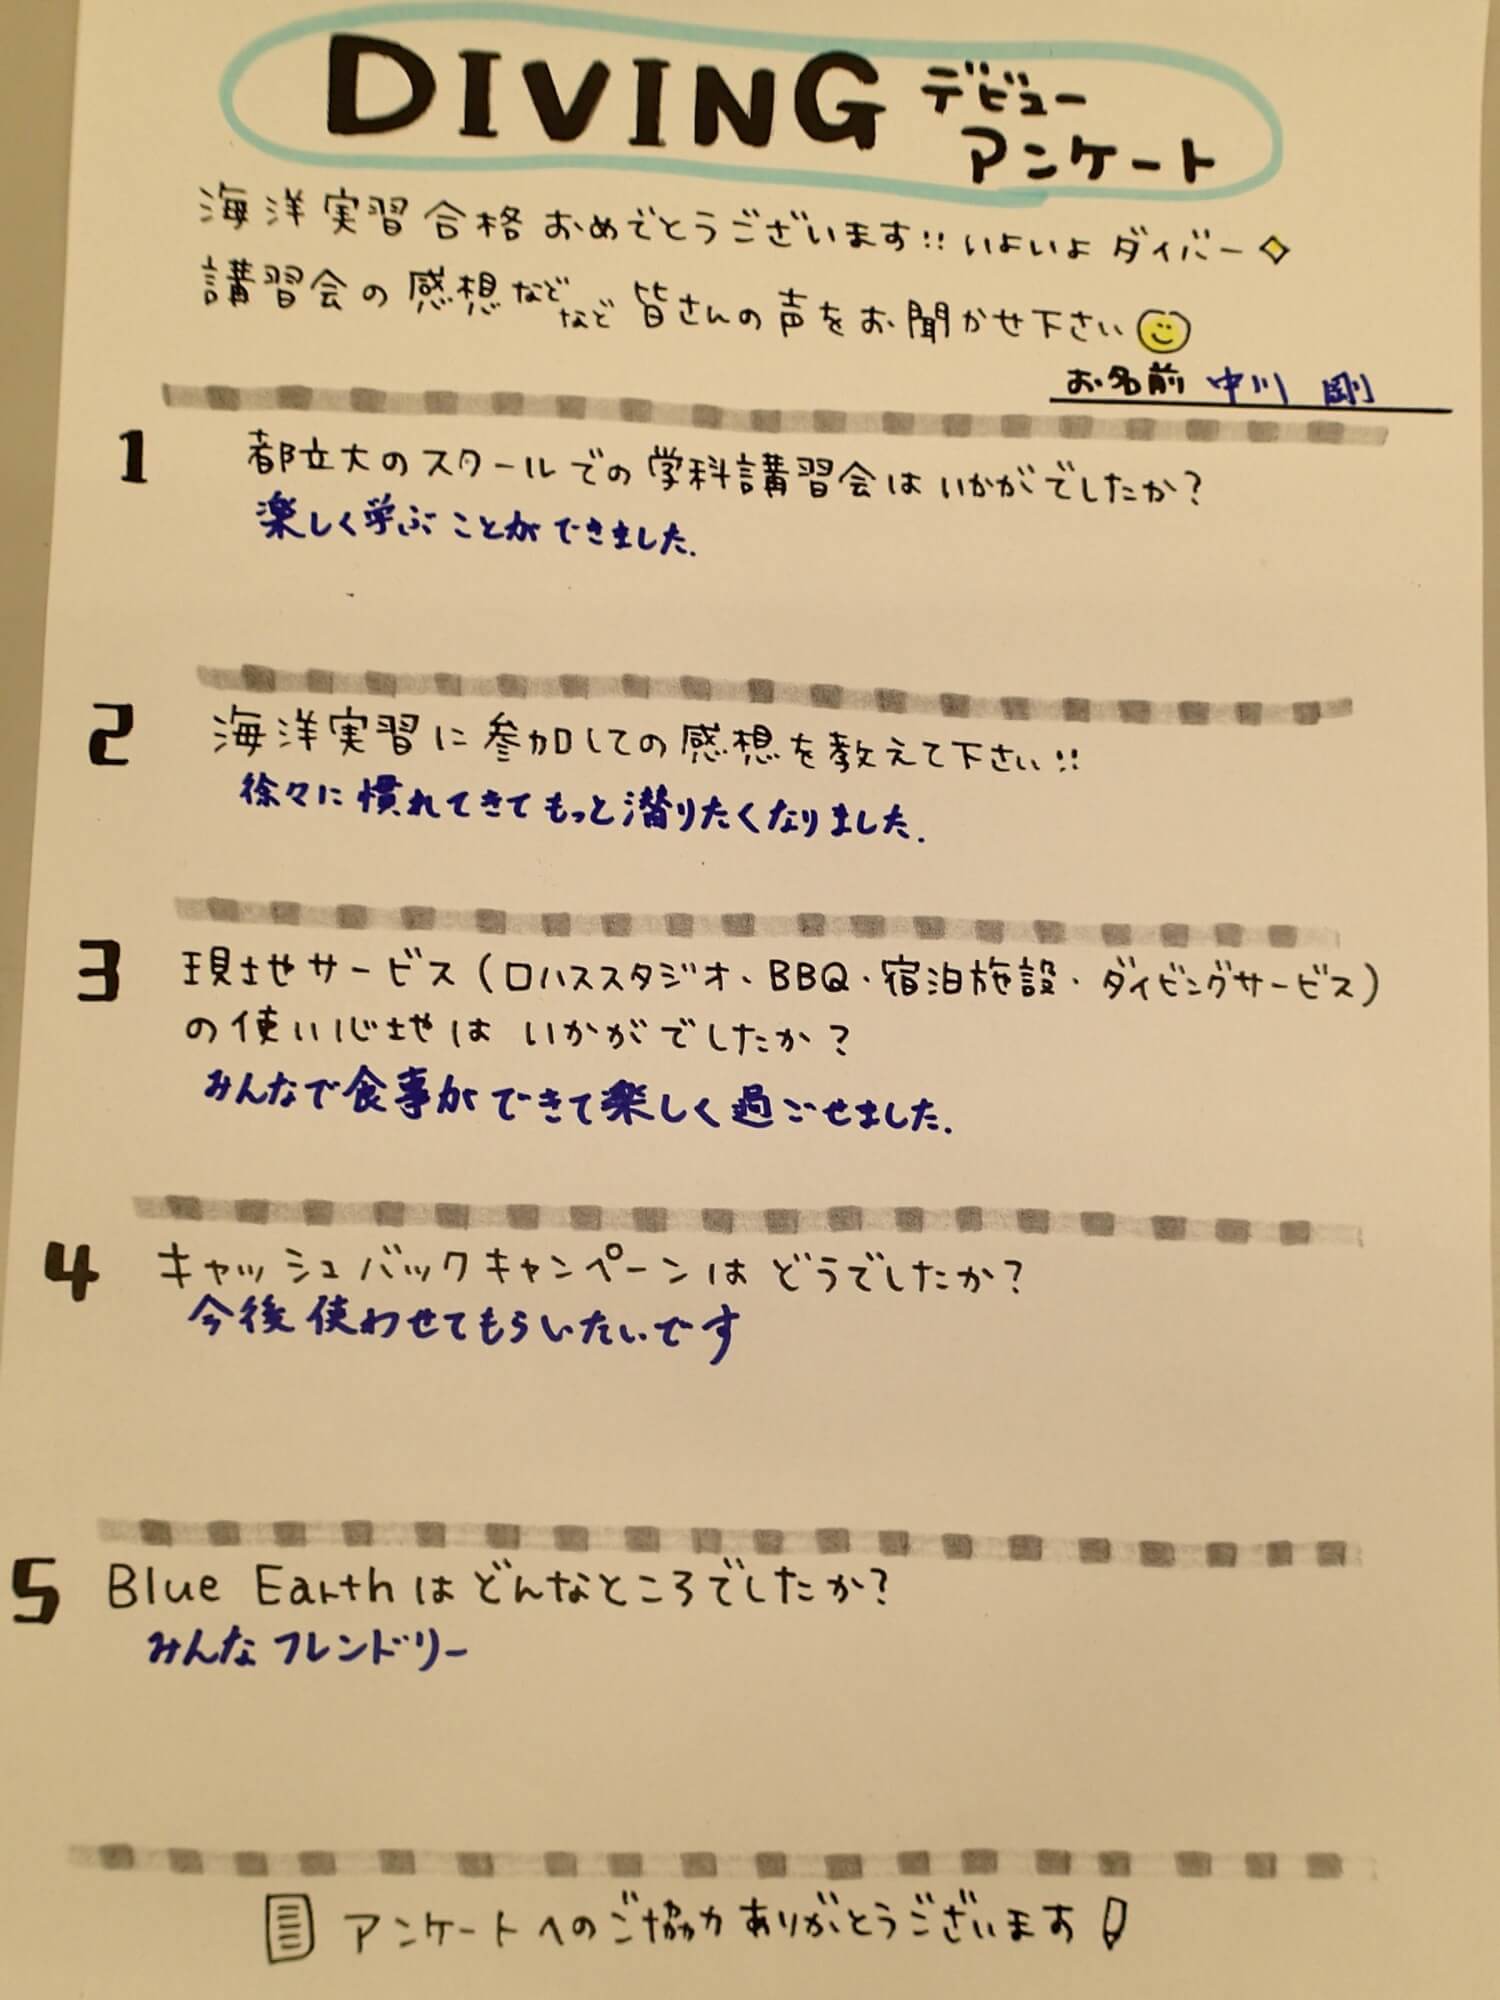 DIVING デビュー
アンケート
海洋実習合格おめでとうございます!! いよいよダイバー
講習会の感想などなど皆さんの声をお聞かせ下さい
お名前 中川 剛
1 都立大のスクールでの学科講習会はいかがでしたか?
楽しく学ぶことができました.
2 海洋実習に参加しての感想を教えて下さい!!
徐々に慣れてきてもっと潜りたくなりました.
3 現地サービス(ロハススタジオ、BBQ・宿泊施設・ダイビングサービス)
の使い心地は いかがでしたか?
みんなで食事ができて楽しく過ごせました.
4 キャッシュバックキャンペーンは どうでしたか?
今後使わせてもらいたいです
5 Blue Earthはどんなところでしたか?
みんなフレンドリー
アンケートへのご協力ありがとうございます